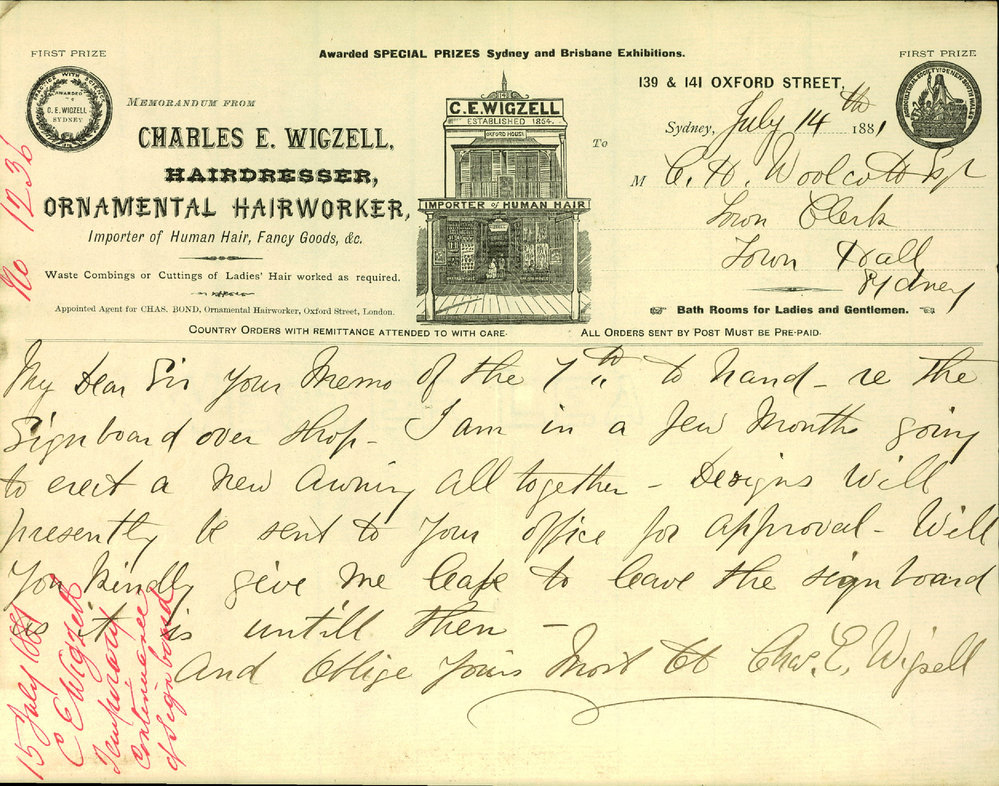 Awarded SPECIAL PRIZES Sydney and Brisbane Exhibitions.
FIRST PRIZE
AWARDED
C. E. WIGZELL
SYDNEY
MEMORANDUM FROM
CHARLES E. WIGZELL,
HAIRDRESSER,
ORNAMENTAL HAIRWORKER,
Importer of Human Hair, Fancy Goods, &c.
Waste Combings or Cuttings of Ladies' Hair worked as required.
Appointed Agent for CHAS. BOND, Ornamental Hairworker, Oxford Street, London.
C.E. WIGZELL
ESTABLISHED 1864.
OXFORD HOUSE
IMPORTER of HUMAN HAIR
FIRST PRIZE
139 & 141 OXFORD STREET,
Sydney, July 14th 1881
To
M C. H. Woolcott Esqr
Town Clerk
Town Hall
Sydney
Bath Rooms for Ladies and Gentlemen.
COUNTRY ORDERS WITH REMITTANCE ATTENDED TO WITH CARE.
ALL ORDERS SENT BY POST MUST BE PRE-PAID.
My Dear Sir Your Memo of the 7th to hand - re the
Signboard over shop - I am in a few Months going
to erect a new awning all together - Designs Will
presently be sent to your office for approval - Will
You kindly give me leave to leave the sign board
as it is untill then -
And Oblige Yours Most Ob Chas. E. Wigzell
No 1236
15 July 1881
C E Wigzell
Temporary
continuance
of sign board